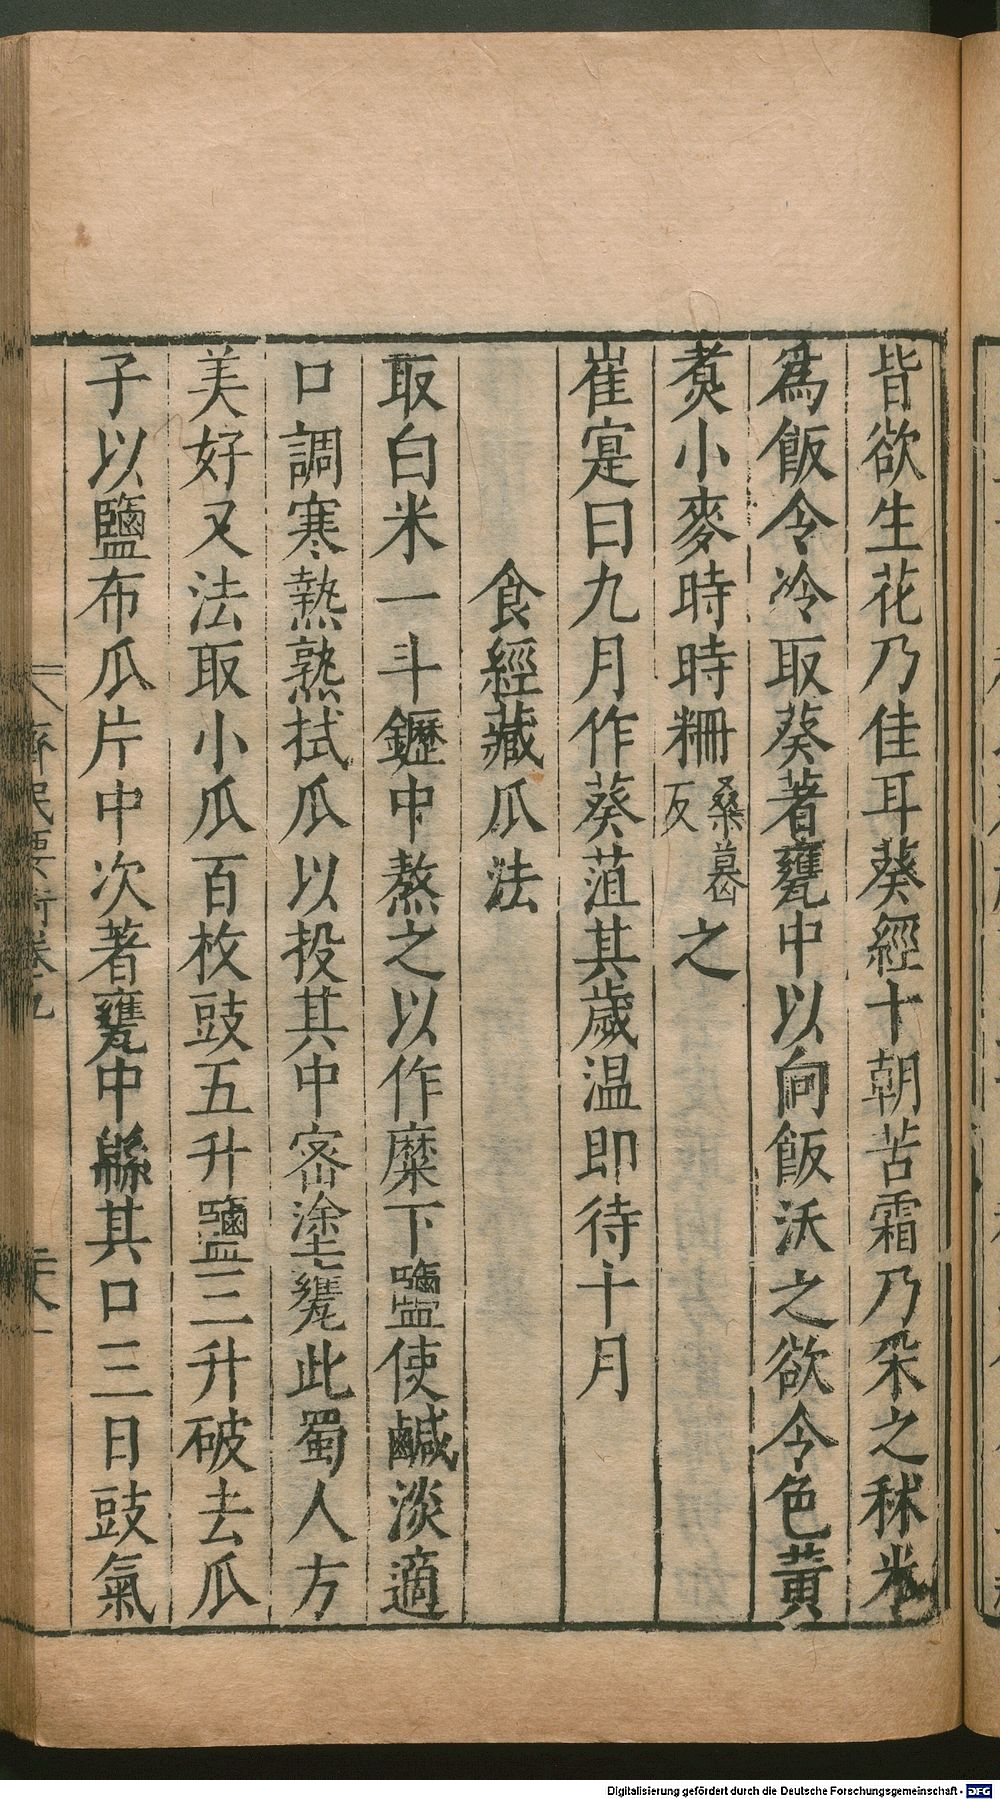 皆欲生花乃佳耳葵經十朝苦霜乃采之秫米
爲飯令冷取葵著甕中以向飯沃之欲令色黄
煑小麥時時粣桑葛反之
崔寔曰九月作葵菹其歲温即待十月
食經藏瓜法
取白米一斗䥶中熬之以作糜下鹽使鹹淡適
口調寒熱熟拭瓜以投其中密塗甕此蜀人方
美好又法取小瓜百枚豉五升鹽三升破去瓜
子以鹽布瓜片中次著甕中緜其口三日豉氣
齊民要術卷九
Digitalisierung gefördert durch die Deutsche Forschungsgemeinschaft - DFG